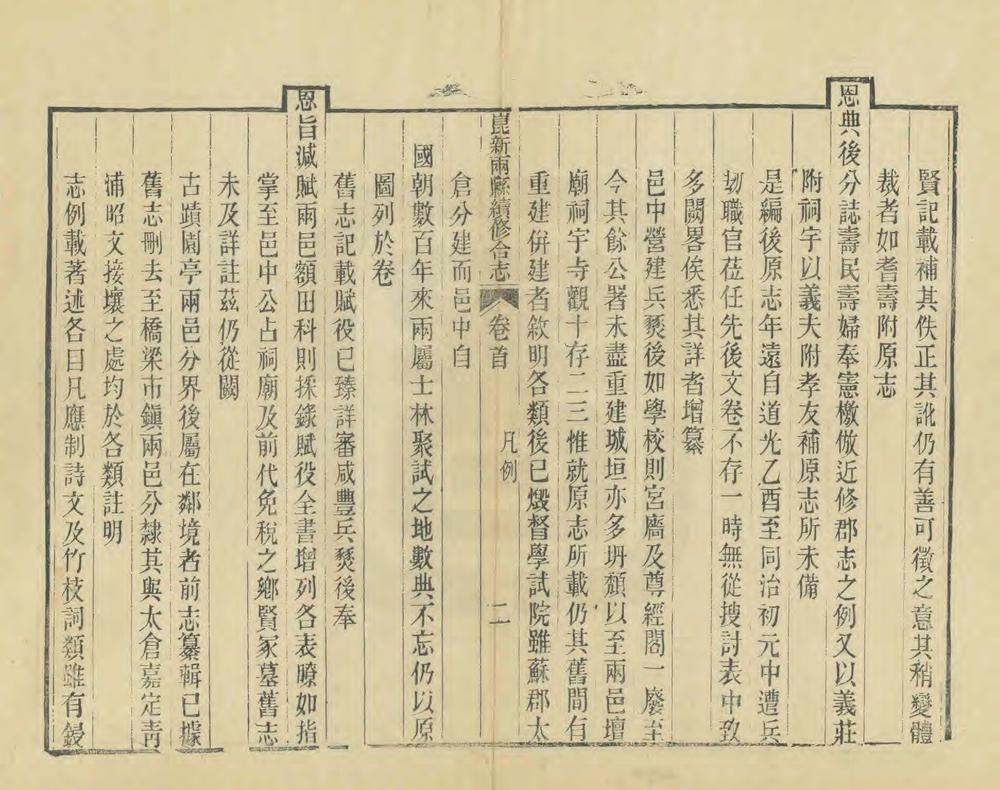 賢記載補其佚正其訛仍有善可徵之意其稍變體
裁者如耆壽附原志
恩典後分誌壽民壽婦奉憲檄倣近修郡志之例又以義莊
附祠宇以義夫附孝友補原志所未備
是編後原志年遠自道光乙酉至同治初元中遭兵
刼職官莅任先後文卷不存一時無從搜討表中致
多闕畧俟悉其詳者增纂
邑中營建兵燹後如學校則宮廧及尊經閣一廢至
今其餘公署未盡重建城垣亦多坍頹以至兩邑壇
廟祠宇寺觀十存二三惟就原志所載仍其舊間有
重建併建者敘明各類後已燬督學試院雖蘇郡太
崑新兩縣續修合志 卷首 凡例 二
倉分建而邑中自
國朝數百年來兩屬士林聚試之地數典不忘仍以原
圖列於卷
舊志記載賦役已臻詳審咸豐兵燹後奉
恩旨減賦兩邑額田科則採錄賦役全書增列各表瞭如指
掌至邑中公占祠廟及前代免稅之鄉賢冢墓舊志
未及詳註茲仍從闕
古蹟園亭兩邑分界後屬在鄰境者前志纂輯已據
舊志刪去至橋梁市鎭兩邑分隸其與太倉嘉定靑
浦昭文接壤之處均於各類註明
志例載著述各目凡應制詩文及竹枝詞類雖有鋟